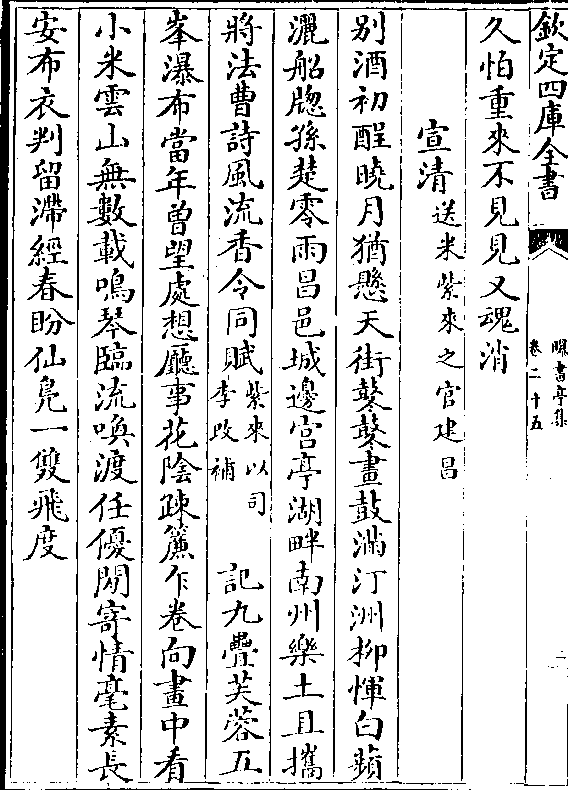 欽定四庫全書
曝書亭集
卷二十五
久怕重來不見見又魂消
宣清送米紫來之官建昌
别酒初醒曉月猶懸天街鼕鼕畫鼓滿汀洲柳惲白蘋
灑船牕孫楚零雨昌邑城邊宫亭湖畔南州樂土且攜
將法曹詩風流香令同賦紫來以司李改補 記九疊芙蓉五
峯瀑布當年曾望處想廳事花陰疎簾乍卷向畫中看
小米雲山無數載鳴琴臨流喚渡任優閒寄情毫素長
安布衣判留滯經春盼仙鳧一雙飛度